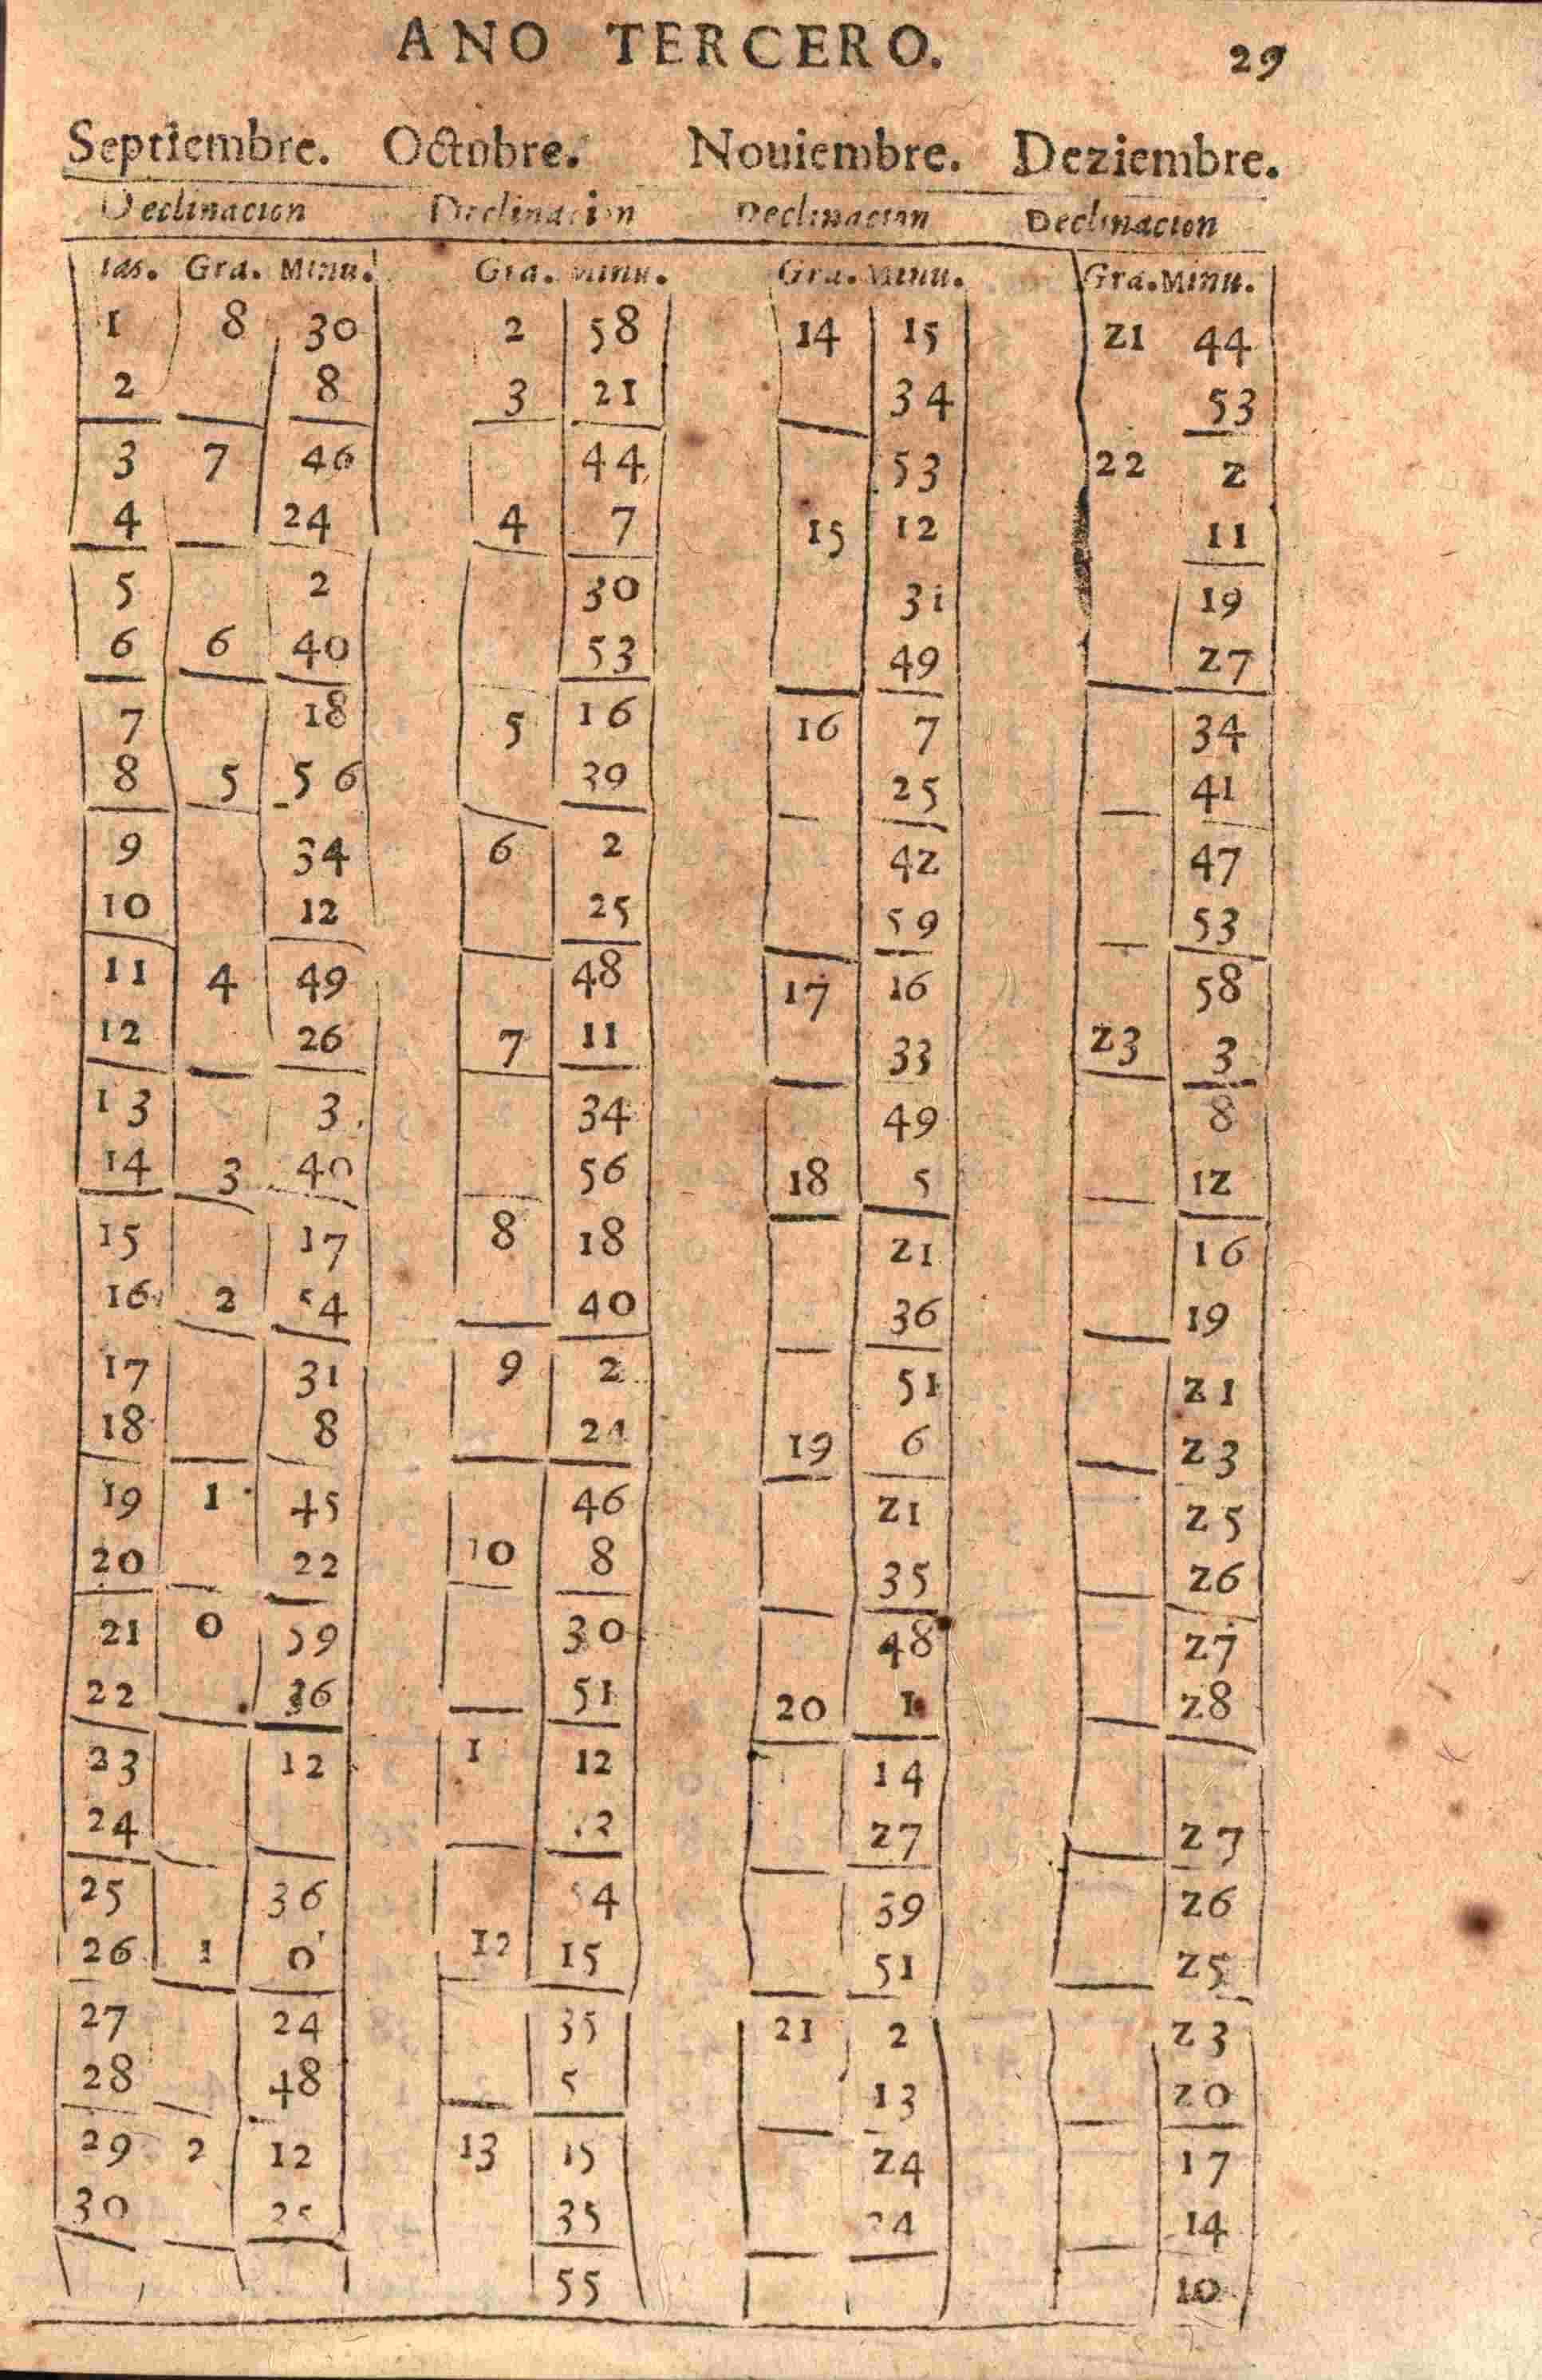 ANO TERCERO. 29
Septiembre. Octubre. Nouiembre. Deziembre.
Declinacion Declinacion Declinacion Declinacion
ias. Gra. Minu. Gra. Minu. Gra. Minu. Gra. Minu.
1 8 30 2 58 14 15 21 44
2 8 3 21 34 53
3 7 46 44 53 22 2
4 24 4 7 15 12 11
5 2 30 31 19
6 6 40 53 49 27
7 18 5 16 16 7 34
8 5 56 39 25 41
9 34 6 2 42 47
10 12 25 59 53
11 4 49 48 17 16 58
12 26 7 11 33 23 3
13 3 34 49 8
14 3 40 56 18 5 12
15 17 8 18 21 16
16 2 54 40 36 19
17 31 9 2 51 21
18 8 24 19 6 23
19 1 45 46 21 25
20 22 10 8 35 26
21 0 59 30 48 27
22 36 51 20 1 28
23 12 1 12 14
24 27 27
25 36 54 39 26
26 1 0 12 15 51 25
27 24 35 21 2 23
28 48 5 13 20
29 2 12 13 15 24 17
30 35 14
55 10